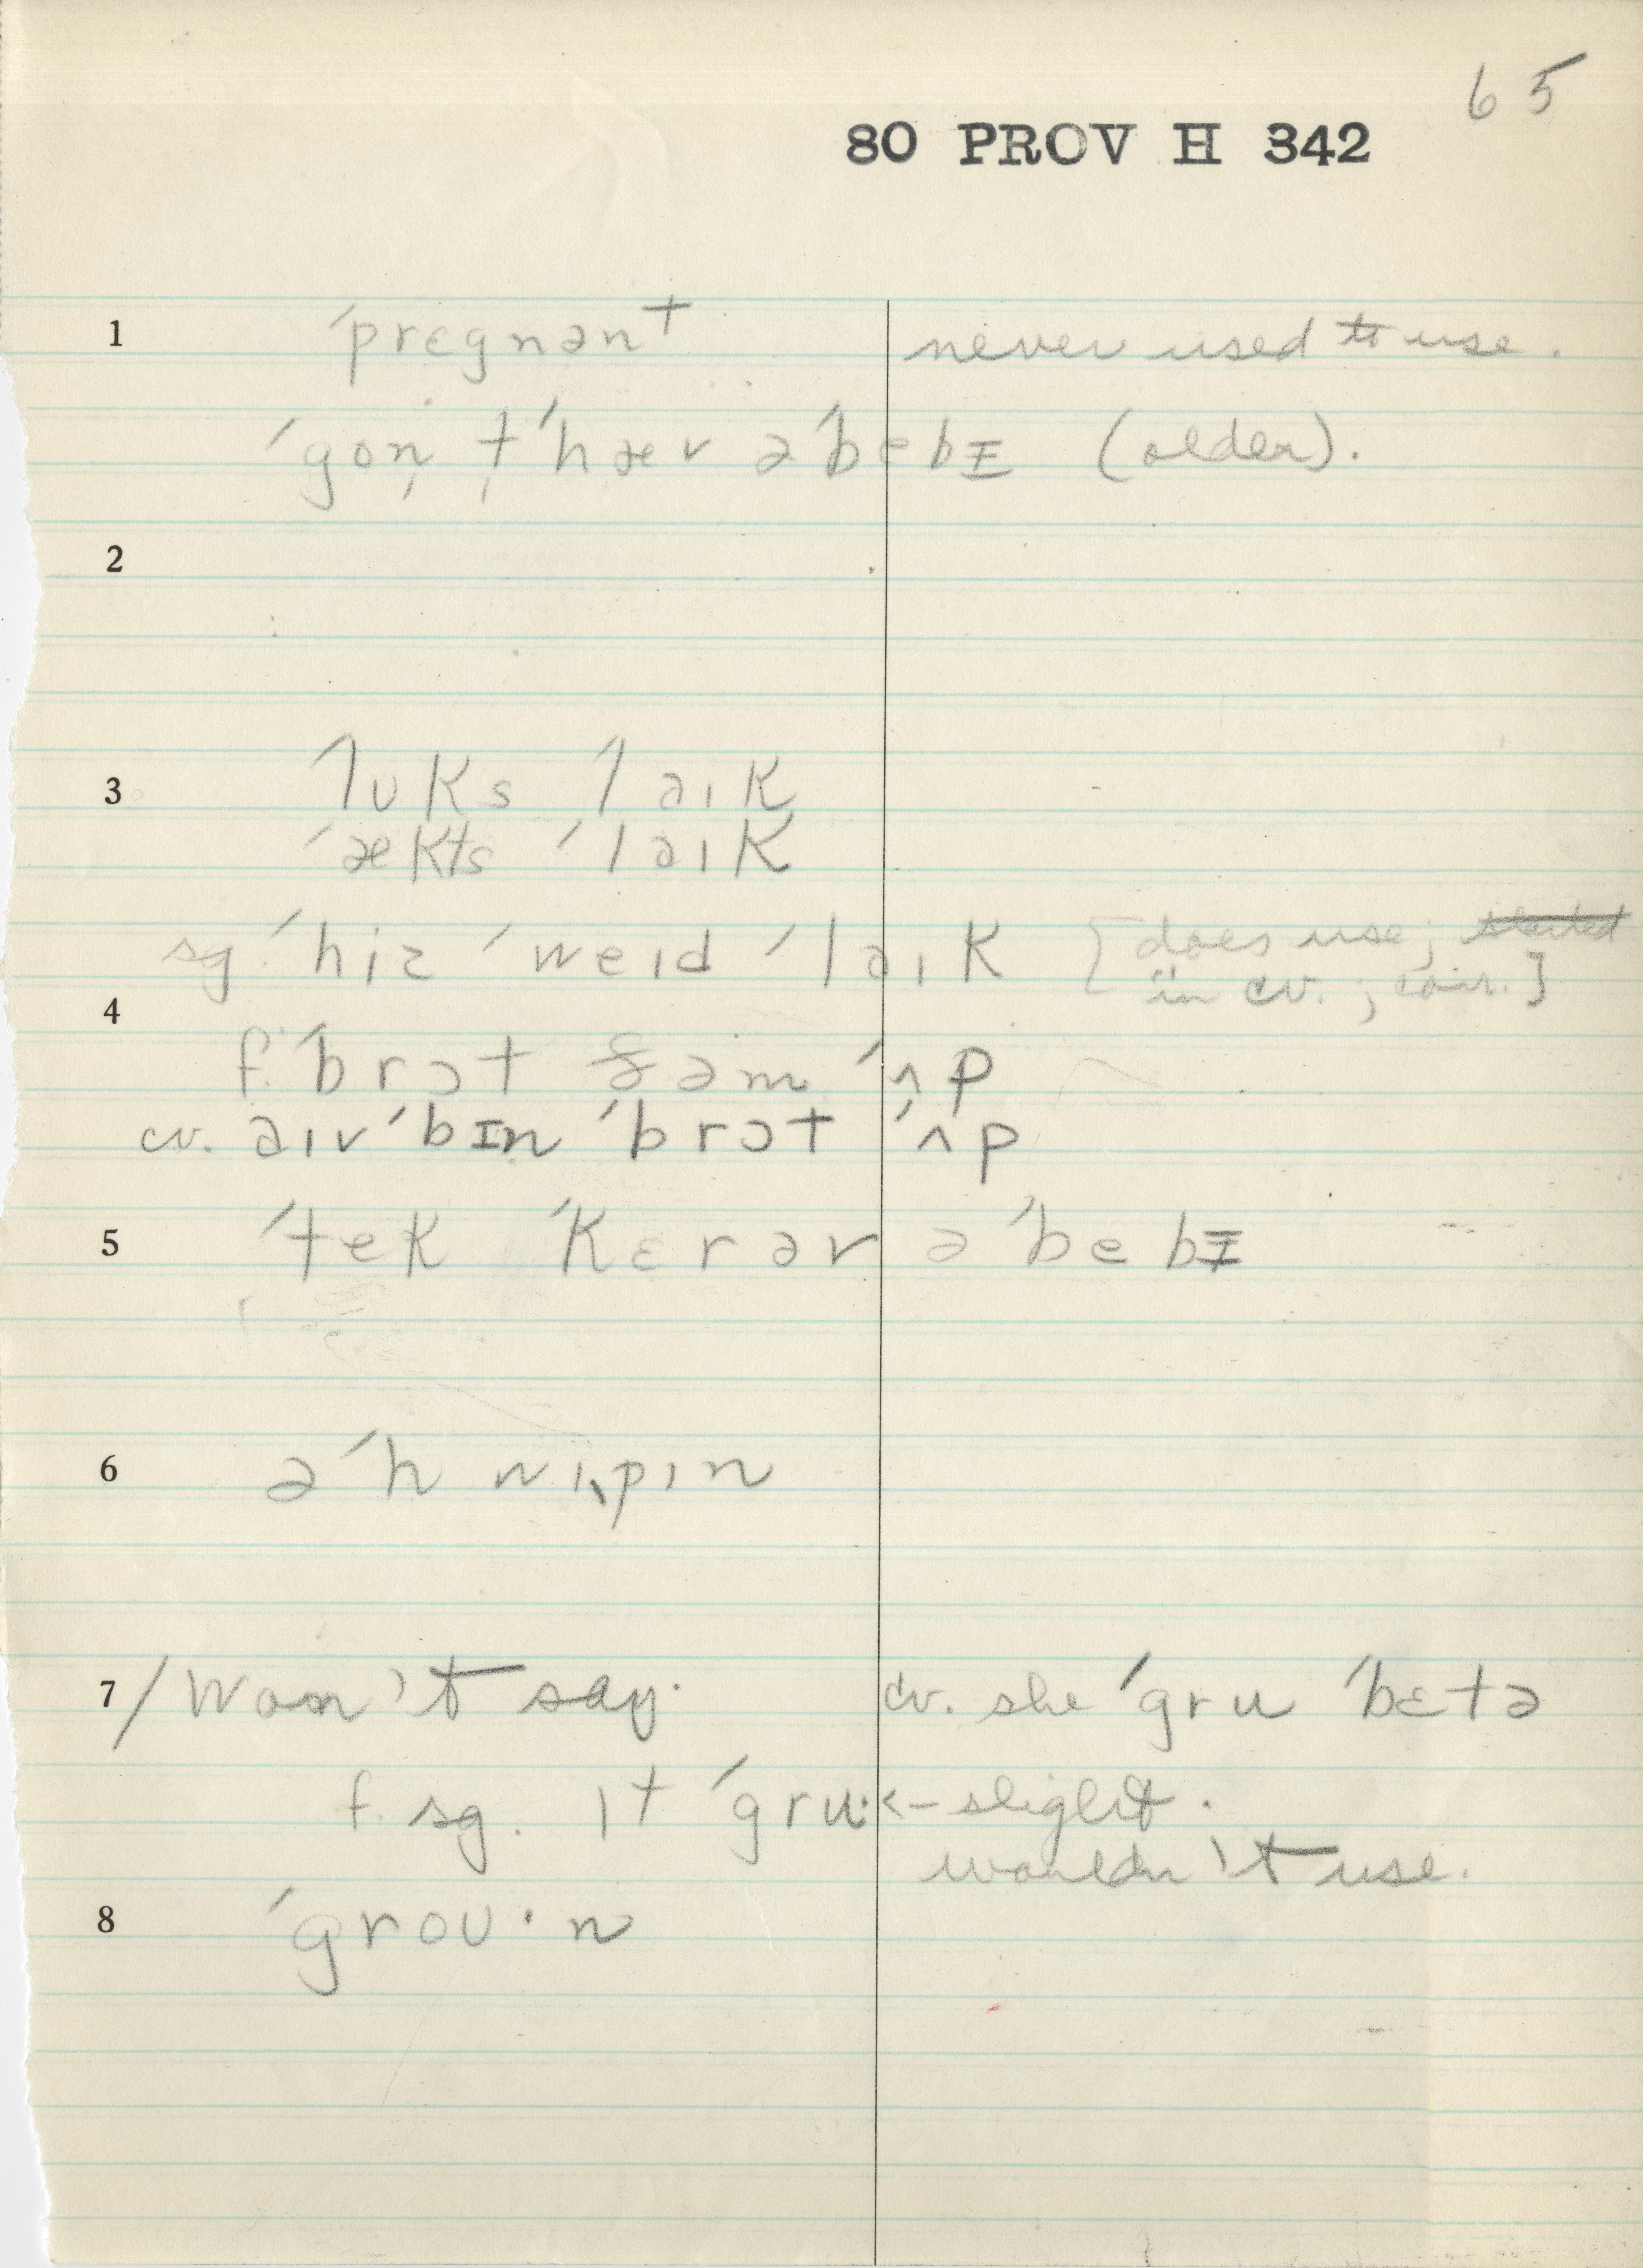 65
80 PROV H 342
1 ˊprɛgnənt never used to use.
ˊgon̦ t̩ˊhæv əˊbebɪ (older).
2
3 ˊlʊks laɪk
ˊækts ˊləɪk
sg. ˊhiz ˊweɪd ˊləɪk [does use; started
in cv. ; coir.]
4
f. ˊbrɔt ðəm ˊʌp
cv. aɪv ˊbɪn ˊbrɔt ˊʌp
5 ˊtek ˊkɛrəv əˊbebɪ
6 əˊhwɪpɪn
7 / Won't say. cv. she ˊgru ˊbɛtə
f. sg. ɪt ˊgru·<- slight.
wouldn't use.
8 ˊgroʊ·n